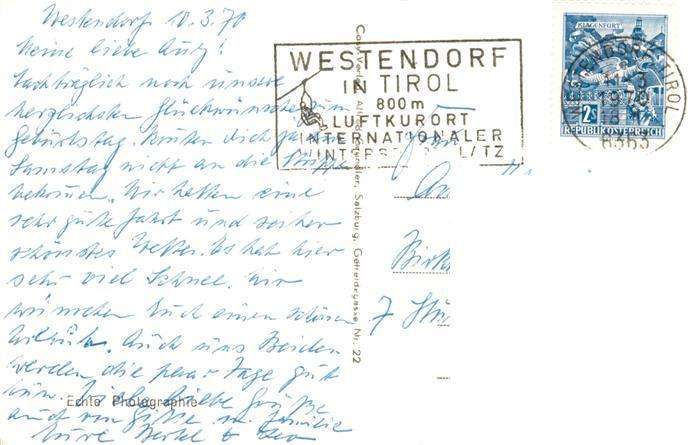 Westendorf 10.3.70
Meine liebe
Nachträglich noch unsere
herzlichsten Glückwünsche zum
Geburtstag. Konten dich
Samstag nicht an die Strippe
bekommen. Wir hatten eine
sehr gute Fahrt und seither
schönstes Wetter. Es hat hier
sehr viel Schnee. Wir
wünschen Euch einen schönen
Urlaub. Auch uns Beiden
werden die paar Tage gut
tun. Liebe Grüße
auch von Familie
Eure
WESTENDORF
IN TIROL
800m
LUFTKURORT
INTERNATIONALER
WINTERS
Salzburg, Getreidegasse Nr. 22
Echte Photographie
7
KLAGENFURT
2S
REPUBLIK ÖSTERREICH
WESTENDORF TIROL
1970
6363